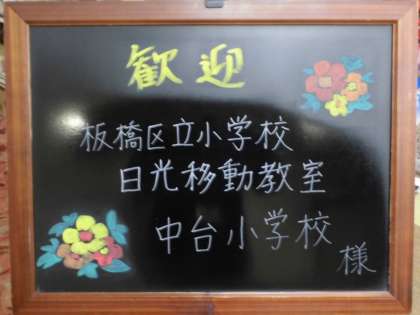 歓迎
板橋区立小学校
日光移動教室
中台小学校
様